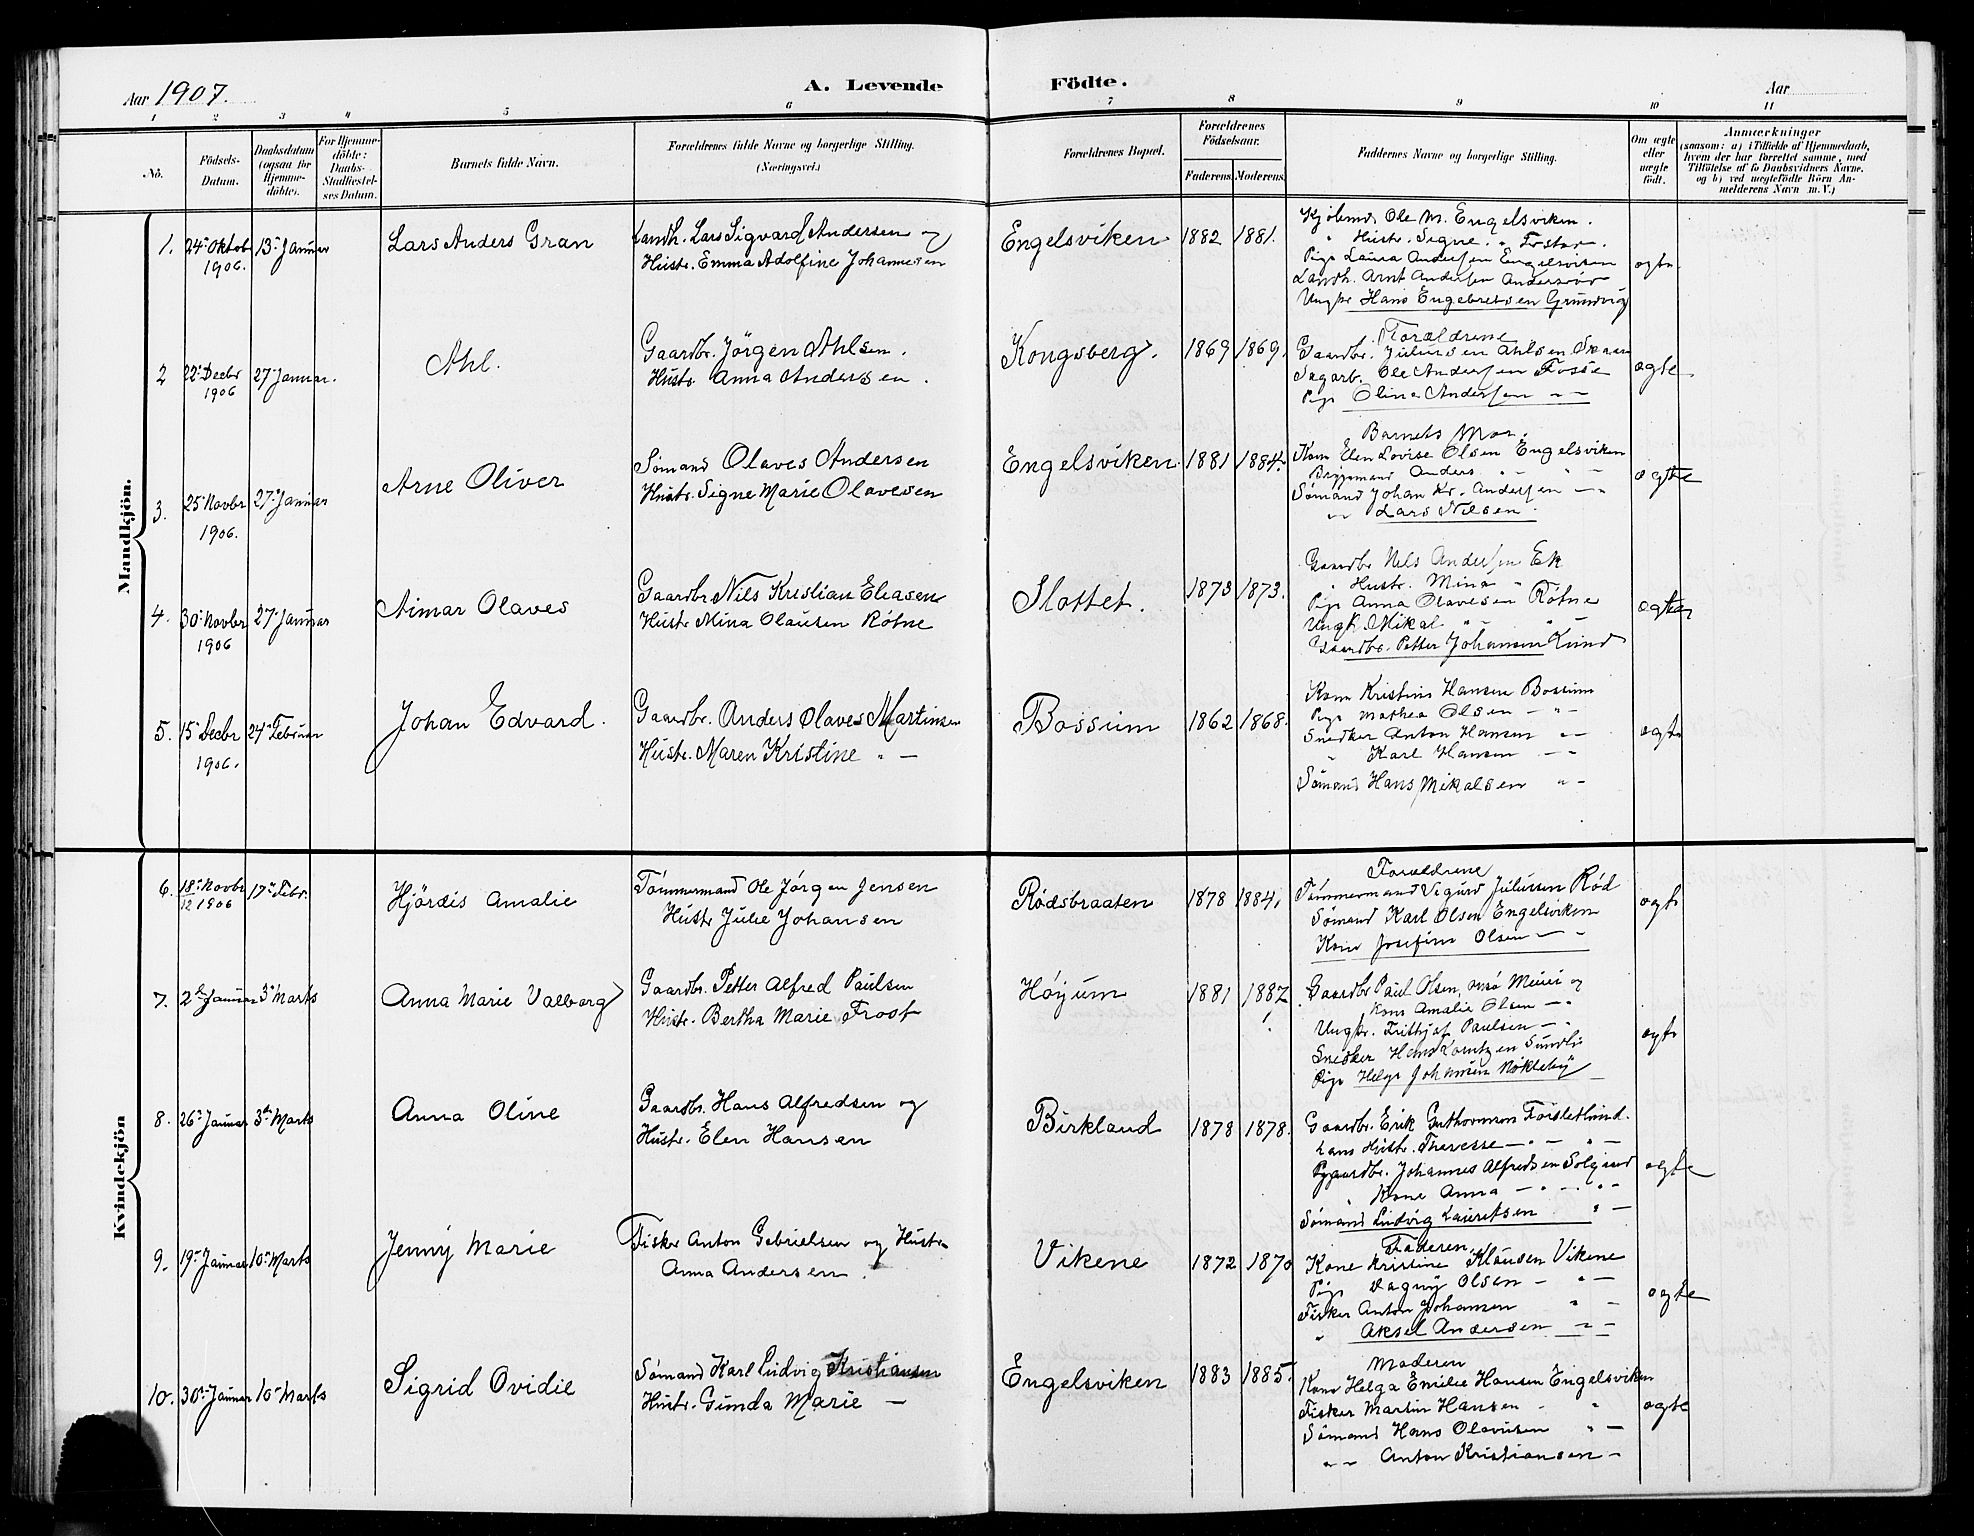 Aar 1907.
A. Levende Födte.
Aar
1 2 3 4 5 6 7 8 9 10 11
No.
Födsels-
Datum.
Daabsdatum
(ogsaa for
Hjemme-
döbte).
For Hjemme-
döbte:
Daabs-
Stadfæstel-
ses Datum.
Barnets fulde Navn.
Forældrenes fulde Navne og borgerlige Stilling.
(Næringsvei.)
Forældrenes Bopæl.
Forældrenes
Födselsaar.
Faderens. Moderens.
Faddernes Navne og borgerlige Stilling.
Om ægte
eller
uægte
födt.
Anmærkninger
(saasom: a) i Tilfælde af Hjemmedaab,
hvem der har forrettet samme, med
Tilföielse af to Daabsvidners Navne,
og b) ved uægtefödte Börn An-
melderens Navn m. V.)
Mandkjön.
1. 24 Oktob 1906. 13 Januar
Lars Anders Gran
Landh. Lars Sigvard Andersen og
Hustr. Emma Adolfine Johannesen
Engelsviken 1882 1881.
Kjøbmd. Ole M. Engelsviken.
" Hustr. Signe. "
Pige Laura Andersen Engelsviken
Landh. Arnt Andersen
Ungkr Hans Engebretsen Grundvig
ægte
2 22 Decbr 1906 27 Januar.
Ahl.
Gaardbr. Jörgen Ahlsen.
Hustr. Anna Andersen.
Kongsberg. 1869 1869.
Forældrene
Gaardbr. Julius en Ahlsen Skaar
Ole Andersen Fosse
Pige Oline Andersen " "
ægte
3. 25 Novbr 1906. 27 Januar
Arne Oliver
Sømand Olaves Andersen
Hustr. Signe Marie Olavesen
Engelsviken 1881 1884.
Barnets Mor.
Kone Elen Lovise Olsen Engelsviken
Anders " "
Sømand Johan Kr. Andersen " "
" " Lars Nilsen
ægte
4. 30 Novbr 1906 27 Januar
Aimar Olaves
Gaardbr Nils Kristian Eliasen
Hustr Mina Olausen Røtne
Slottet. 1873 1873.
Gaardbr Nels Andersen Ek
" Hustr. Mina "
Pige Anna Olavesen Røtne
Ungk. Mikal " "
Gaardbr. Petter Johansen Lund
ægte
5. 15 Decbr 1906. 24 Februar
Johan Edvard.
Gaardbr. Anders Olaves Martinsen
Hustr. Maren Kristine " —
Bossum 1862 1868.
Kone Kristine Hansen Bossum
Pige Mathea Olsen — " —
Snedker Anton Hansen " —
" Karl Hansen — " —
Sømand Hans Mikalsen " —
ægte
Kvindekjön
6. 18 Novbr 12 1906 17 Febr.
Hjördis Amalie
Tømmermand Ole Jørgen Jensen
Hustr Julie Johansen
Rødsbraaten 1878 1884.
Forældrene
Tømmermand Vigurd Juliussen Rød
Sømand Karl Olsen Engelsviken
Kone Josefine Olsen — " —
ægte
7. 2 Januar 3 Marts
Anna Marie Valborg
Gaardbr. Petter Alfred Paulsen
Hustr. Bertha Marie Frost
Høyum 1881 1887
Gaardbr Paul Olsen, og
Kone Amalie Olsen — "
Ungkr. Frithjof Paulsen — "
Snedker Hans Lorntzen Sundli
Pige Helga Johansen Nøkleby
ægte
8. 26 Januar 3 Marts
Anna Oline
Gaardbr. Hans Alfredsen og
Hustr. Elen Hansen
Birkland 1878 1878.
Gaardbr. Erik Guthormsen
hans Hustr. Therese — " — " —
Gaardbr. Johannes Alfredsen Solgaard
" Kone Anna — " — " —
Sømand Ludvig Lauritsen " —
ægte
9. 19 Januar 10 Marts
Jenny Marie
Fisker Anton Gabrielsen og Hustr
Anna Andersen.
Vikene 1872 1870
Faderen,
Kone Kristine Klausen Vikene
Pige Dagny Olsen — " —
Fisker Anton Johansen " —
" Aksel Andersen " —
ægte
10. 30 Januar 10 Marts
Sigrid Ovidie
Sømand Karl Ludvig Kristiansen
Hustr. Gunda Marie —
Engelsviken 1883 1885.
Moderen
Kone Helga Emilie Hansen Engelsviken
Fisker Martin Hansen - "
Sømand Hans Olavusen " —
" " Anton Kristiansen —
ægte